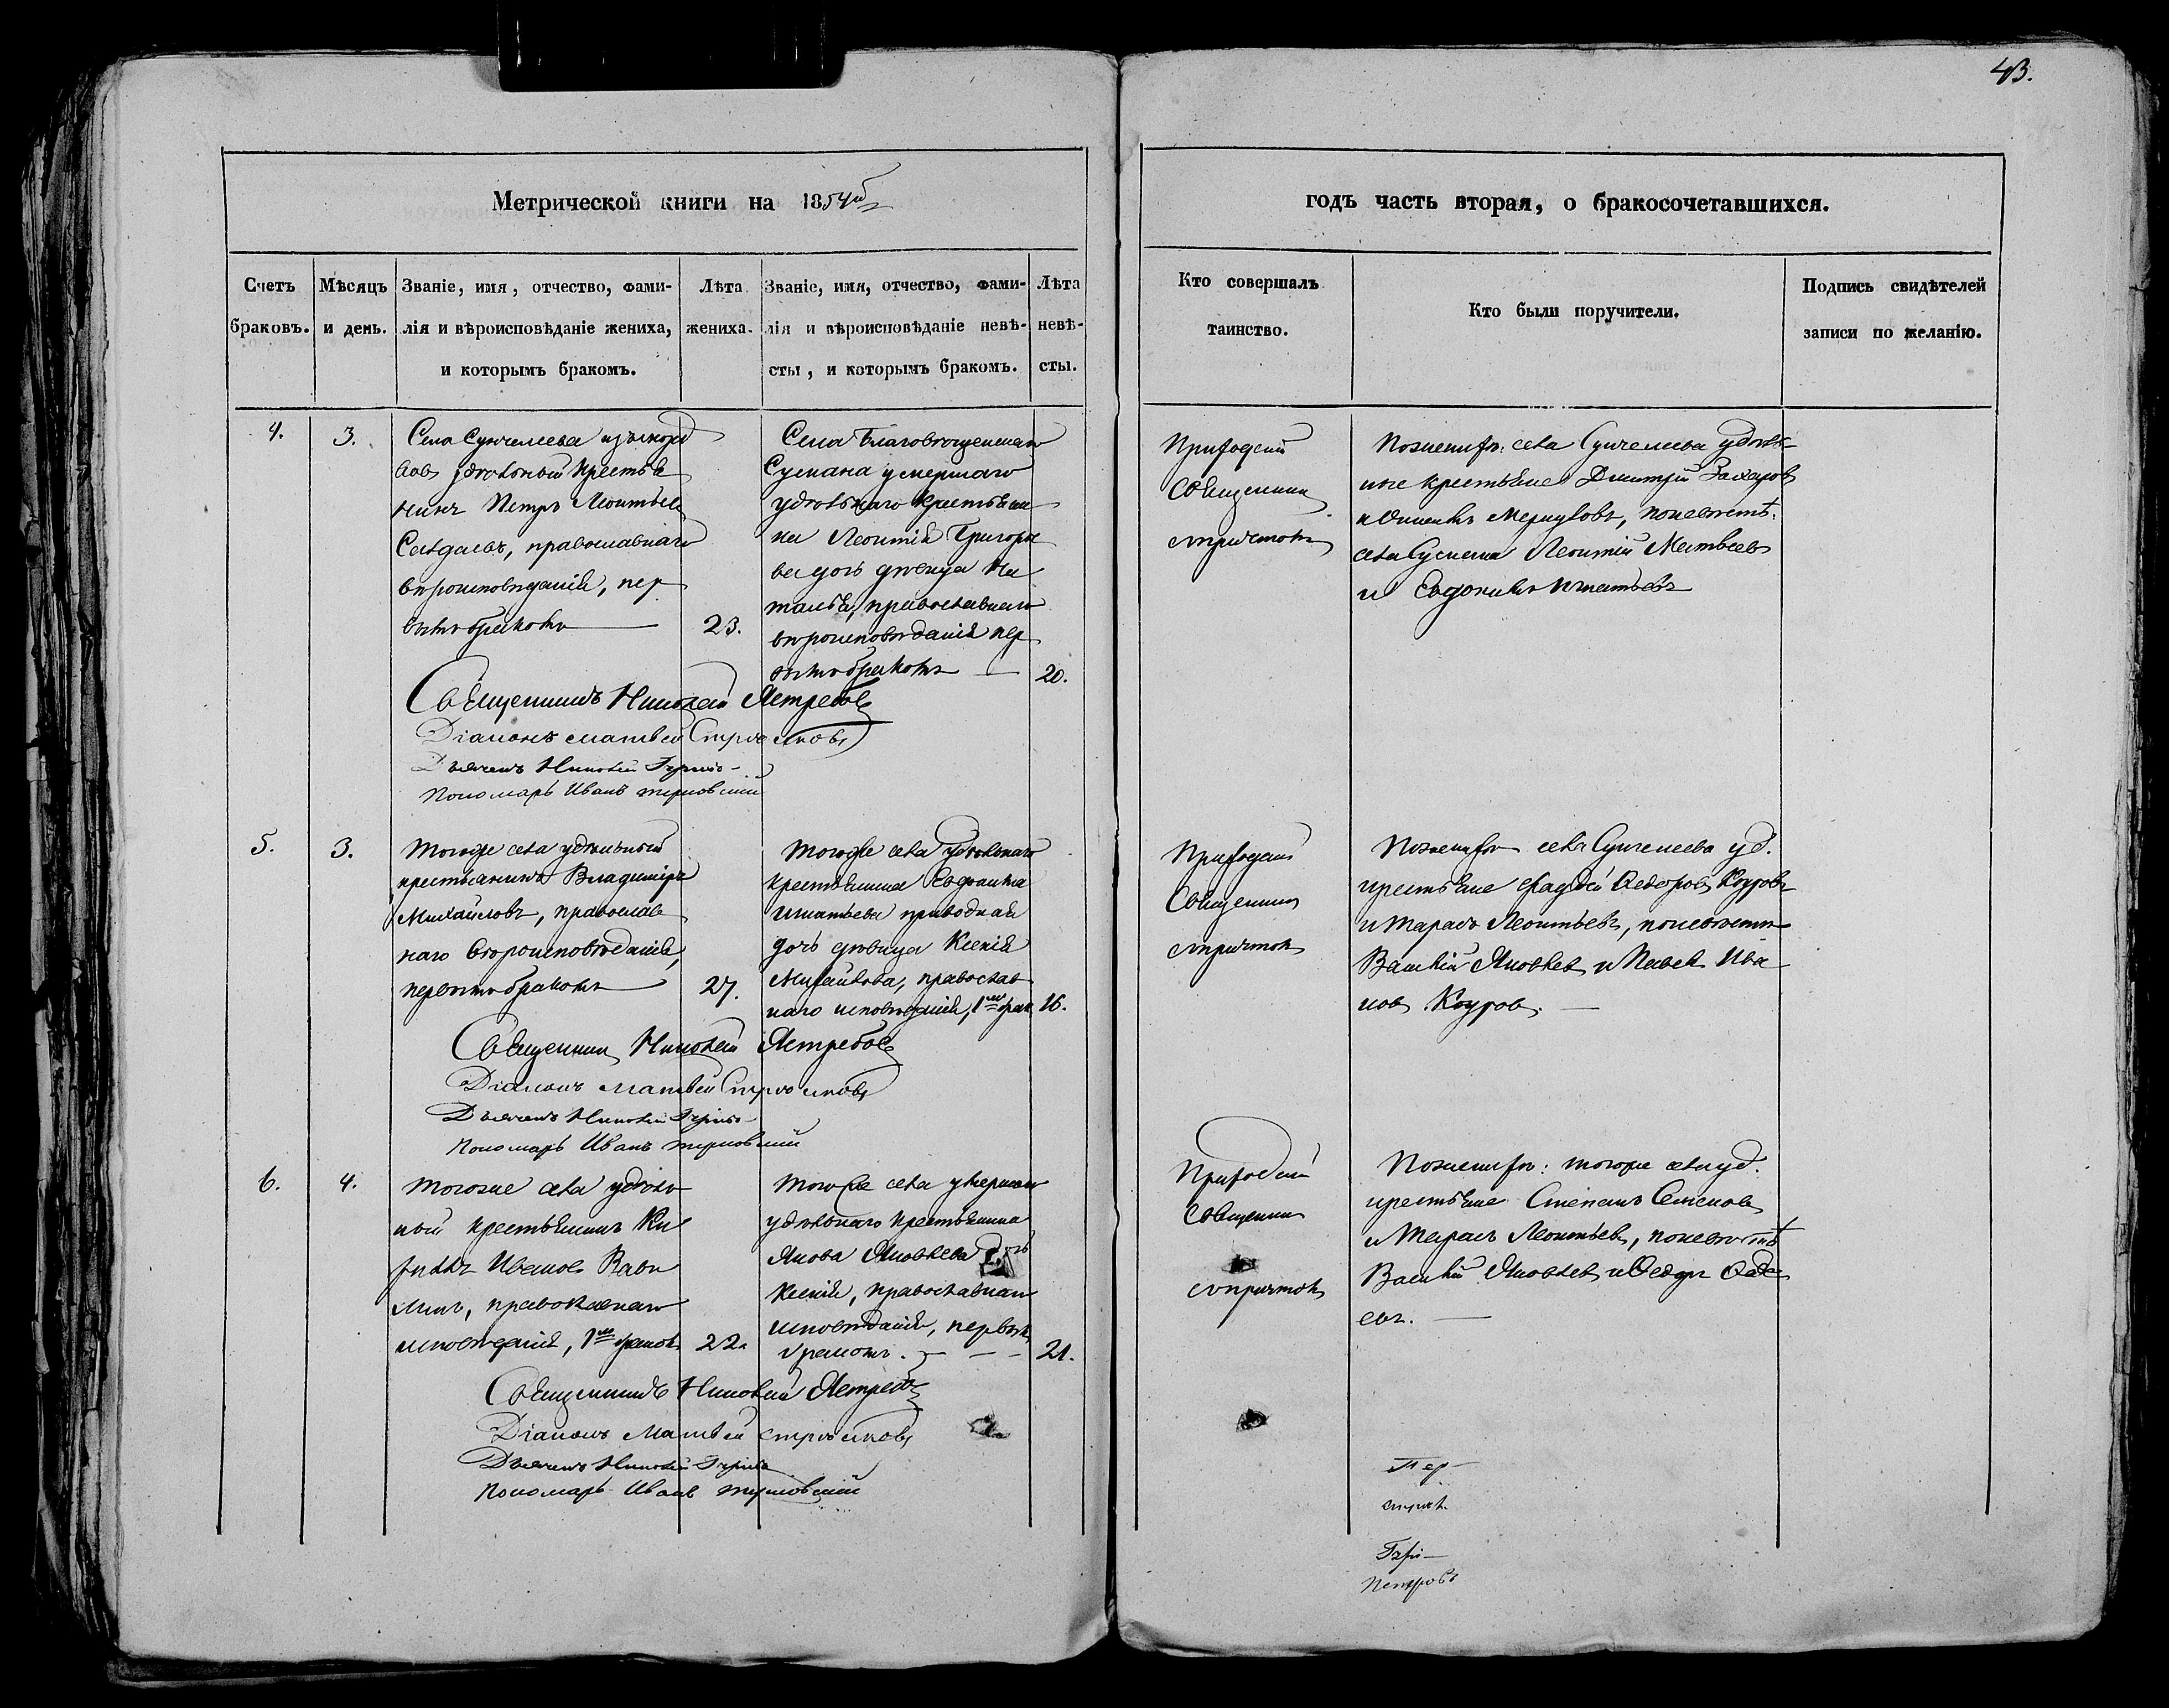 43.
Метрической книги на 1854й
годъ часть вторая, о бракосочетавшихся.
Счетъ браковъ.
Мѣсяцъ и день.
Званіе, имя, отчество, фами-
лія и вѣроисповѣданіе жениха,
и которымъ бракомъ.
Лѣта
жениха.
Званіе, имя, отчество, фами-
лія и вѣроисповѣданіе невѣ-
сты, и которымъ бракомъ.
Лѣта
невѣ-
сты.
Кто совершалъ
таинство.
Кто были поручители.
Подпись свидѣтелей
записи по желанію.
4.
3.
Села Сунчелеева
удѣльный крестья
нинъ Петръ Леонтьев
православнаго
вѣроисповѣданія, пер
вымъ бракомъ
23.
Села Благовѣщенскаго
Сускана умершаго
удѣльнаго крестьяни
на Леонтія Григорье
ва дочь дѣвица На
талья, православнаго
вѣроисповѣданія пер
вымъ бракомъ
20.
Приходскій
Священник
с причтомъ
По женихѣ: села Сунчелеева удѣль-
ные крестьяне Дмитрій Захаров
и Меркуловъ, по невѣстѣ:
села Сускана Леонтій Матвеев
и Евдокимъ Игнатьевъ
Священникъ Николай Ястребов
Діаконъ Матвей
Дьячекъ Николай
Пономарь Иванъ Терновскій
5.
3.
Того же села удѣльный
крестьянинъ Владиміръ
Михайловъ, православ
наго вѣроисповѣданія,
первымъ бракомъ
27.
Того же села удѣльнаго
крестьянина
Игнатьева приводная
дочь дѣвица Ксенія
Михайлова, православ
наго исповѣданія, 1мъ брак.
16.
Приходскій
Священник
с причтомъ
По женихѣ села Сунчелеева уд.
крестьяне Фаддей Федоров
и Тарасъ Леонтьевъ, по невѣстѣ
Василій Яковлев и Павел Ива
нов
Священник Николай Ястребов
Діаконъ Матвей
Дьячекъ Николай
Пономарь Иванъ Терновскій
6.
4.
Того же села удѣль
ный крестьянинъ Ки
рилъ Иванов Вави
линъ, православнаго
исповѣданія, 1мъ браком
22.
Того же села умершаго
удѣльнаго крестьянина
Якова Яковлева дочь
Ксенія, православнаго
исповѣданія, первымъ
бракомъ.
21.
Приходскій
Священник
с причтомъ
По женихѣ: того же села уд.
крестьяне Степанъ Семенов
и Тарасъ Леонтьев, по невѣстѣ
Василій Яковлев и Федоръ
евъ.
Священникъ Николай Ястребов
Діаконъ Матвей
Дьячекъ Николай
Пономарь Иванъ Терновскій
Петровъ